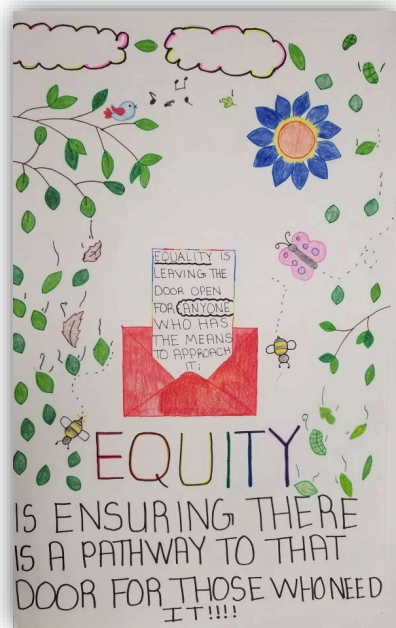 EQUALITY IS
LEAVING THE
DOOR OPEN
FOR ANYONE
WHO HAS
THE MEANS
TO APPROACH
IT;
EQUITY
IS ENSURING THERE
IS A PATHWAY TO THAT
DOOR FOR THOSE WHO NEED
IT!!!!